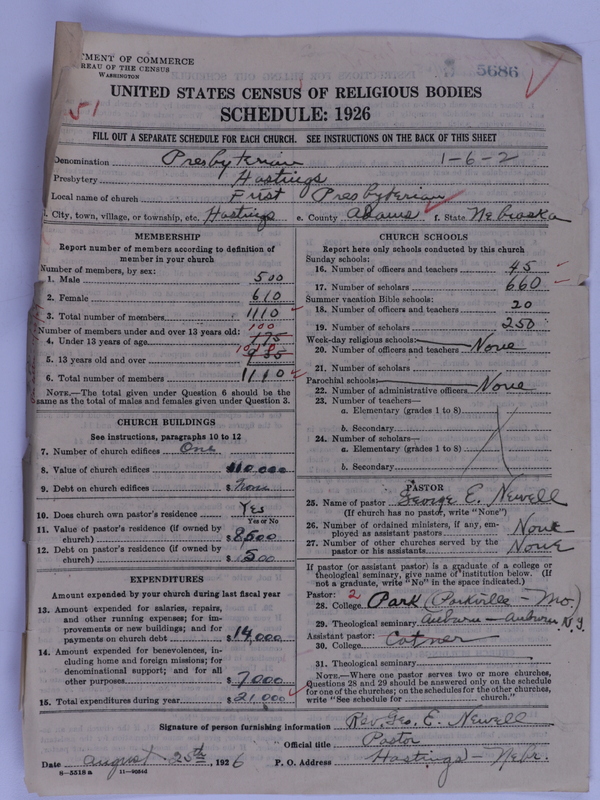 TMENT OF COMMERCE
REAU OF THE CENSUS
WASHINGTON
5686
51
UNITED STATES CENSUS OF RELIGIOUS BODIES
SCHEDULE: 1926
FILL OUT A SEPARATE SCHEDULE FOR EACH CHURCH. SEE INSTRUCTIONS ON THE BACK OF THIS SHEET
Denomination Presbyterian 1-6-2
Presbytery Hastings
Local name of church First Presbyterian
d. City, town, village, or township, etc. Hastings e. County Adams f. State Nebraska
MEMBERSHIP
Report number of members according to definition of
member in your church
Number of members, by sex:
1. Male 500
2. Female 610
3. Total number of members 1110
Number of members under and over 13 years old:
100
4. Under 13 years of age 175
1010
5. 13 years old and over 935
6. Total number of members 1110
NOTE.—The total given under Question 6 should be the
same as the total of males and females given under Question 3.
CHURCH BUILDINGS
See instructions, paragraphs 10 to 12
7. Number of church edifices One
8. Value of church edifices $110,000
9. Debt on church edifices $ None
10. Does church own pastor's residence Yes
Yes or No
11. Value of pastor's residence (if owned by
church) $8500
12. Debt on pastor's residence (if owned by
church) $500
EXPENDITURES
Amount expended by your church during last fiscal year
13. Amount expended for salaries, repairs,
and other running expenses; for im-
provements or new buildings; and for
payments on church debt $14,000
14. Amount expended for benevolences, in-
cluding home and foreign missions; for
denominational support; and for all
other purposes $7000
15. Total expenditures during year $21,000
CHURCH SCHOOLS
Report here only schools conducted by this church
Sunday schools:
16. Number of officers and teachers 45
17. Number of scholars 660
Summer vacation Bible schools:
18. Number of officers and teachers 20
19. Number of scholars 250
Week-day religious schools:
20. Number of officers and teachers None
21. Number of scholars
Parochial schools:
22. Number of administrative officers None
23. Number of teachers—
a. Elementary (grades 1 to 8)
b. Secondary
24. Number of scholars—
a. Elementary (grades 1 to 8)
b. Secondary
PASTOR
25. Name of pastor George E. Newell
(If church has no pastor, write "None")
26. Number of ordained ministers, if any, em-
ployed as assistant pastors None
27. Number of other churches served by the
pastor or his assistants None
If pastor (or assistant pastor) is a graduate of a college or
theological seminary, give name of institution below. (If
not a graduate, write "No" in the space indicated.)
Pastor: 2
28. College Park (Parkville - Mo.)
29. Theological seminary Auburn - Auburn, N.Y.
Assistant pastor:
30. College Cotner
31. Theological seminary
NOTE.—Where one pastor serves two or more churches,
Questions 28 and 29 should be answered only on the schedule
for one of the churches; on the schedules for the other churches,
write "See schedule for church."
Signature of person furnishing information Rev. Geo. E. Newell
Official title Pastor
Date August 25th, 1926 P. O. Address Hastings - Nebr.
8-5518a 11-9554d